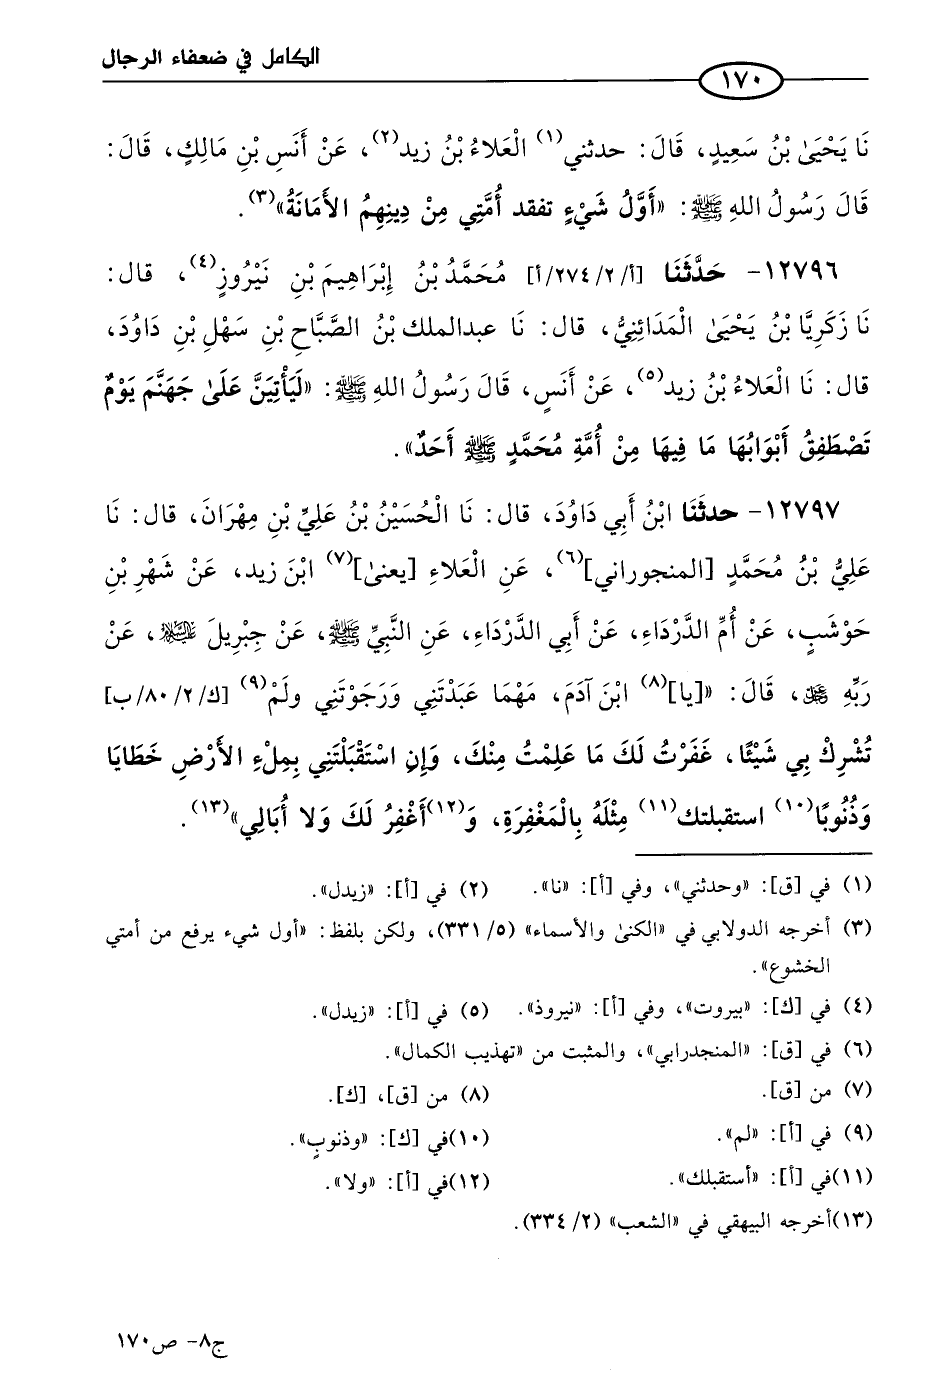 الكامل في ضعفاء الرجال
١٧٠
نَا يَحْيَىٰ بْنُ سَعِيدٍ، قَالَ: حدثني(١) الْعَلَاءُ بْنُ زيد(٢)، عَنْ أَنَسِ بْنِ مَالِكٍ، قَالَ:
قَالَ رَسُولُ اللهِ ﷺ: «أَوَّلُ شَيْءٍ تفقد أُمَّتِي مِنْ دِينِهِمُ الأَمَانَةُ»(٣).
١٢٧٩٦- حَدَّثَنَا [أ/٢/٢٧٤/أ] مُحَمَّدُ بْنُ إِبْرَاهِيمَ بْنِ نَيْرُوزٍ(٤)، قال:
نَا زَكَرِيَّا بْنُ يَحْيَىٰ الْمَدَائِنِيُّ، قال: نَا عبدالملك بْنُ الصَّبَّاحِ بْنِ سَهْلِ بْنِ دَاوُدَ،
قال: نَا الْعَلاءُ بْنُ زيد(٥)، عَنْ أَنَسٍ، قَالَ رَسُولُ اللهِ ﷺ: «لَيَأْتِيَنَّ عَلَىٰ جَهَنَّمَ يَوْمٌ
تَصْطَفِقُ أَبْوَابُهَا مَا فِيهَا مِنْ أُمَّةِ مُحَمَّدٍ ﷺ أَحَدٌ».
١٢٧٩٧- حدثَنَا ابْنُ أَبِي دَاوُدَ، قال: نَا الْحُسَيْنُ بْنُ عَلِيِّ بْنِ مِهْرَانَ، قال: نَا
عَلِيُّ بْنُ مُحَمَّدٍ [المنجوراني](٦)، عَنِ الْعَلاءِ [يعنىٰ](٧) ابْنَ زيد، عَنْ شَهْرِ بْنِ
حَوْشَبٍ، عَنْ أُمِّ الدَّرْدَاءِ، عَنْ أَبِي الدَّرْدَاءِ، عَنِ النَّبِيِّ ﷺ، عَنْ جِبْرِيلَ عليه السلام، عَنْ
رَبِّهِ ﷿، قَالَ: «[يا](٨) ابْنَ آدَمَ، مَهْمَا عَبَدْتَنِي وَرَجَوْتَنِي ولَمْ(٩) [ك/٢/٨٠/ب]
تُشْرِكْ بِي شَيْئًا، غَفَرْتُ لَكَ مَا عَلِمْتُ مِنْكَ، وَإِنِ اسْتَقْبَلْتَنِي بِمِلْءِ الأَرْضِ خَطَايَا
وَذُنُوبًا(١٠) استقبلتك(١١) مِثْلَهُ بِالْمَغْفِرَةِ، وَ(١٢)أَغْفِرُ لَكَ وَلا أُبَالِي»(١٣).
(١) في [ق]: «وحدثني»، وفي [أ]: «نا». (٢) في [أ]: «زيدل».
(٣) أخرجه الدولابي في «الكنىٰ والأسماء» (٥/ ٣٣١)، ولكن بلفظ: «أول شيء يرفع من أمتي
الخشوع».
(٤) في [ك]: «بيروت»، وفي [أ]: «نيروذ». (٥) في [أ]: «زيدل».
(٦) في [ق]: «المنجدرابي»، والمثبت من «تهذيب الكمال».
(٧) من [ق]. (٨) من [ق]، [ك].
(٩) في [أ]: «لم». (١٠)في [ك]: «وذنوبٍ».
(١١)في [أ]: «أستقبلك». (١٢)في [أ]: «ولا».
(١٣)أخرجه البيهقي في «الشعب» (٢/ ٣٣٤).
ج٨- ص١٧٠